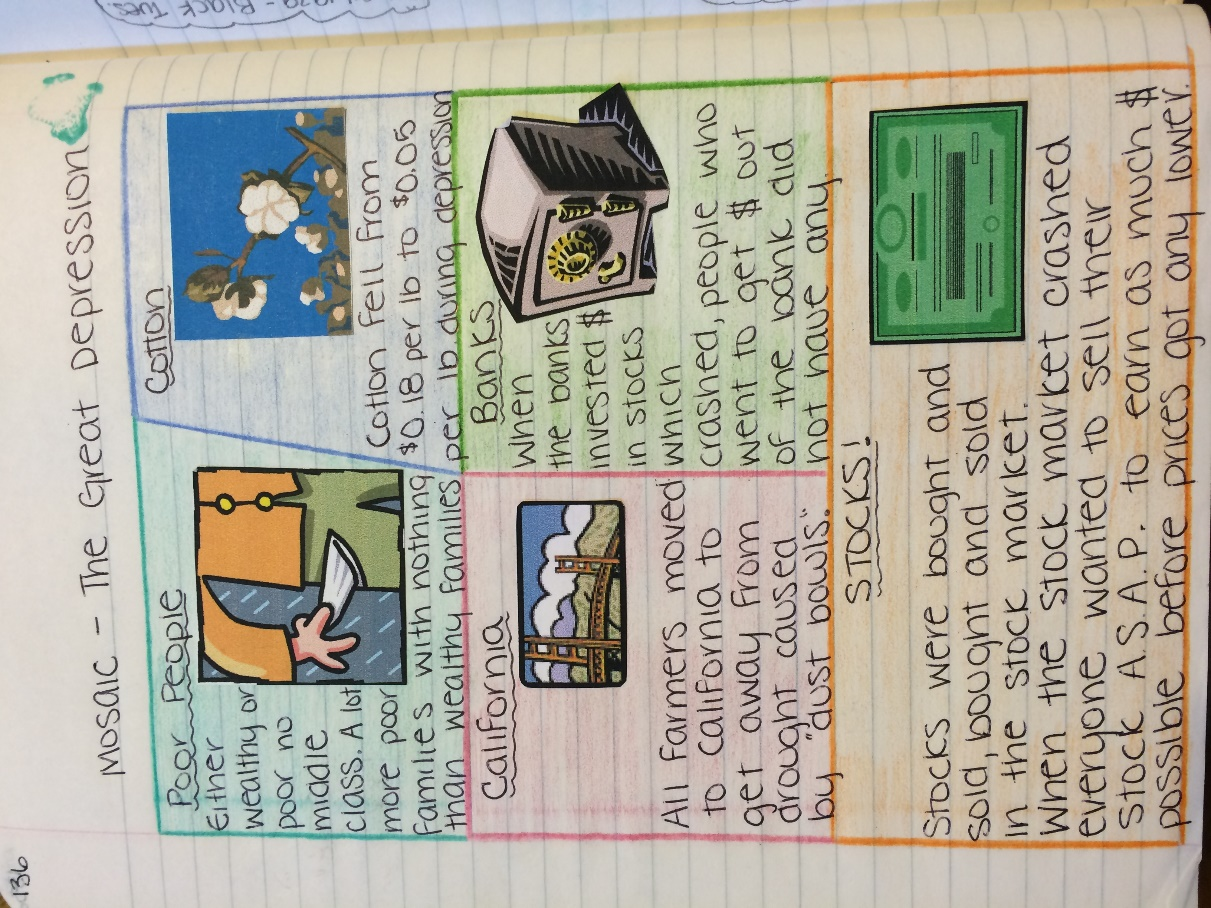 136
Mosaic - The Great Depression
Poor People
Either
wealthy or
poor no
middle
class. A lot
more poor
families with nothing
than wealthy families
Cotton
Cotton fell from
$0.18 per lb to $0.05
per lb during depression
California
All farmers moved
to California to
get away from
drought caused
by "dust bowls."
Banks
When
the banks
invested $
in stocks
which
crashed, people who
went to get $ out
of the bank did
not have any.
STOCKS!
Stocks were bought and
sold, bought and sold
in the stock market.
When the stock market crashed
everyone wanted to sell their
stock A.S.A.P. to earn as much $
possible before prices got any lower.
1929 - Black Tues.